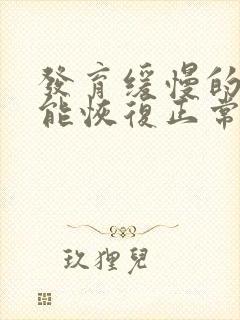 發育緩慢的
能恢復正常
玖狸兒